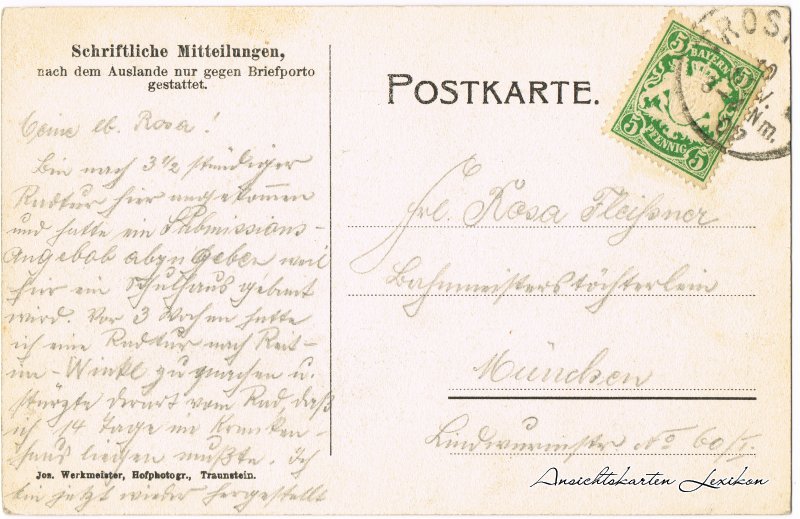 Schriftliche Mitteilungen,
nach dem Auslande nur gegen Briefporto
gestattet.
POSTKARTE.
5 BAYERN 5
5 PFENNIG 5
Nm.
lb. Rosa!
Bin nach 3 1/2 stündiger
Radtur hier angekommen
und hatte ein Submissions-
angebot abzugeben weil
hier ein Schulhaus gebaut
wird. Vor 3 Wochen hatte
ich eine Radtur nach Reit-
im-Winkl zu machen u.
stürzte derart vom Rad, daß
ich 14 Tage im Kranken-
haus liegen mußte. Ich
bin jetzt wieder hergestellt
Frl. Rosa Fleißner
Bahnmeisterstöchterlein
München
Lindwurmstr No 60/I
Jos. Werkmeister, Hofphotogr., Traunstein.
Ansichtskarten Lexikon